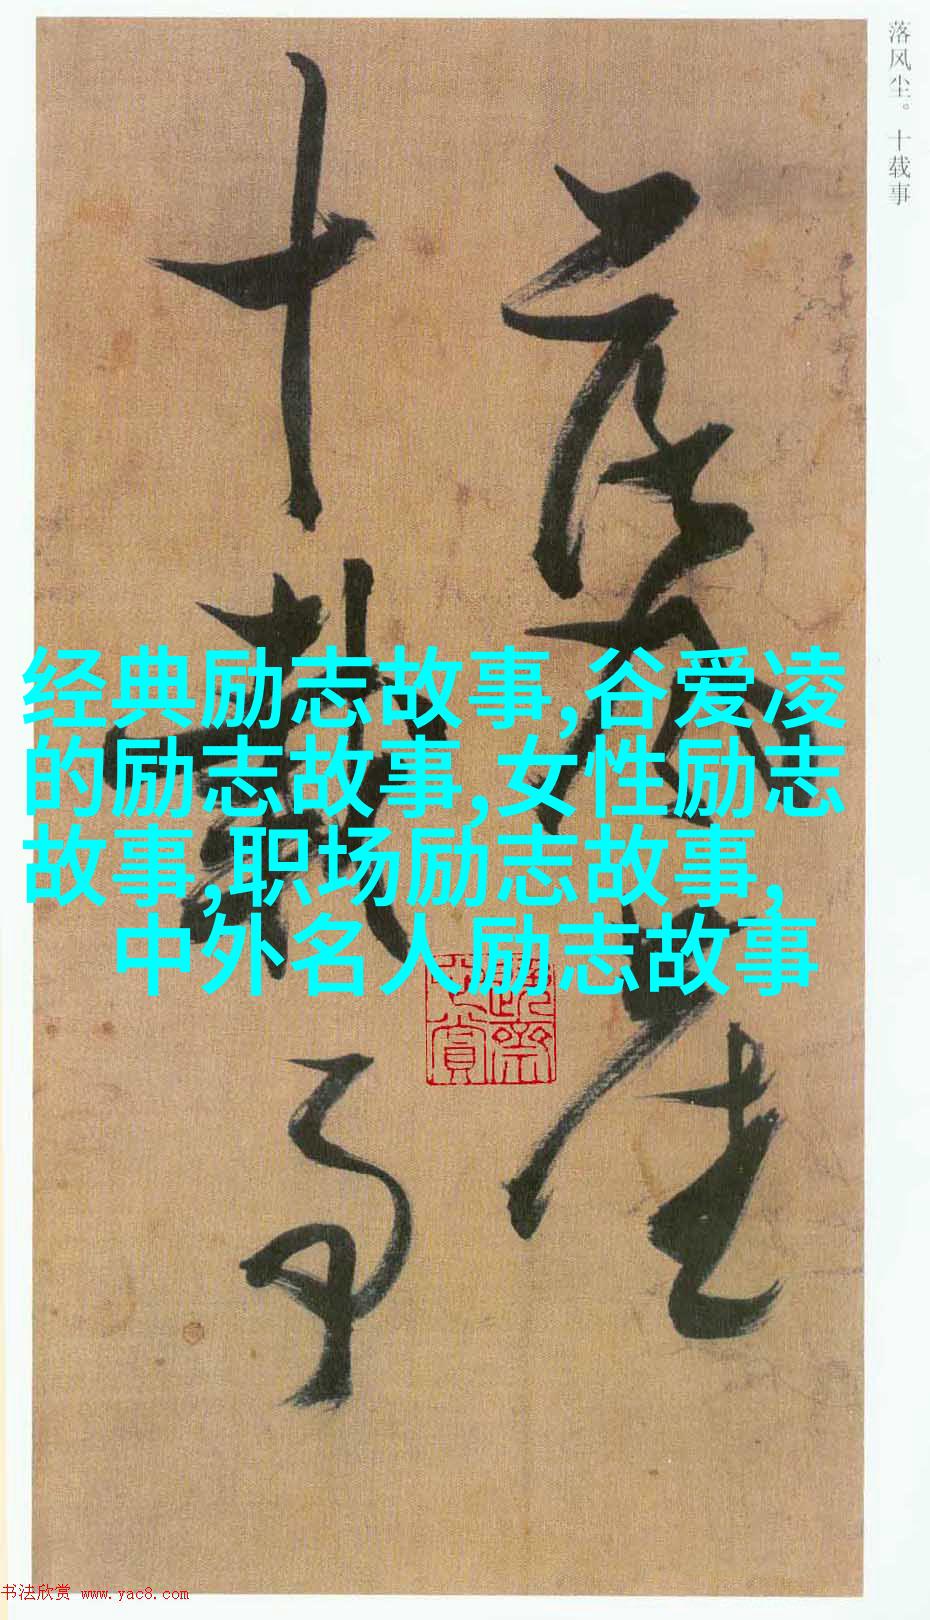 落风尘。十载事
落风尘
十载事
经典励志故事,谷爱凌
的励志故事,女性励志
故事,职场励志故事,
中外名人励志故事
书法欣赏 www.yac8.com